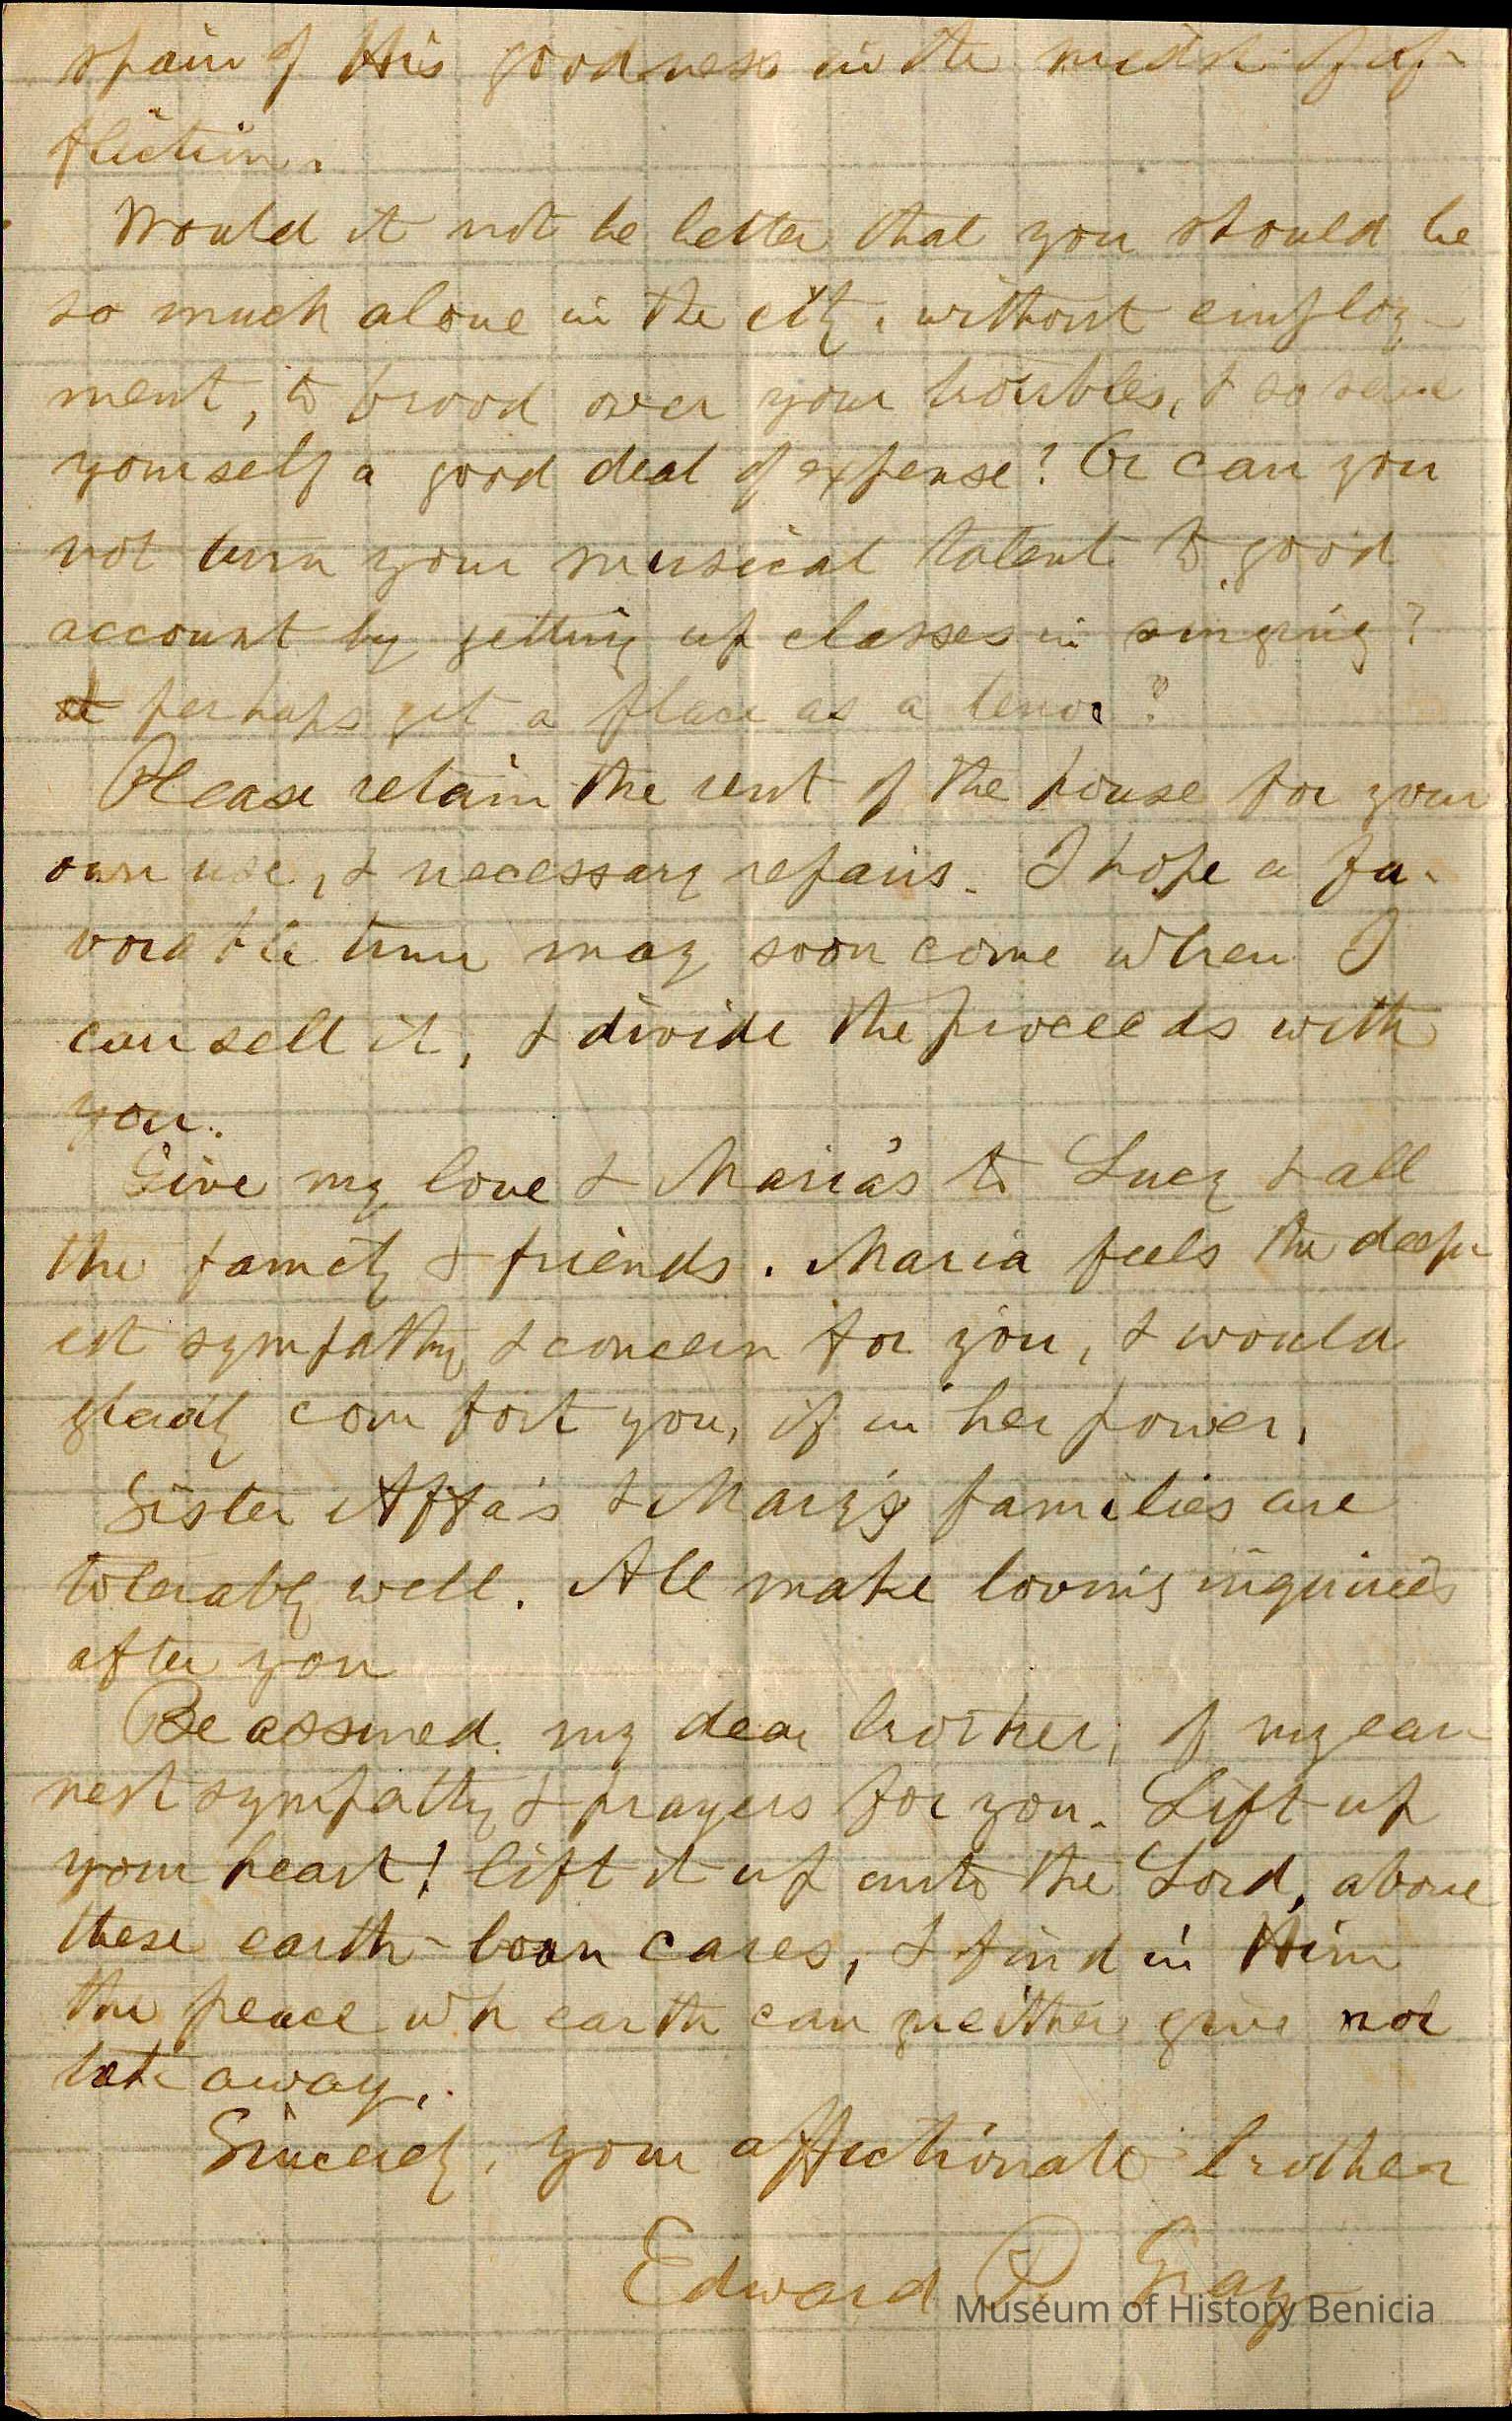 spair of His goodness in the midst of af-
fliction.
Would it not be better that you should be
so much alone in the city, without employ-
ment, to brood over your troubles, & so save
yourself a good deal of expense? Or can you
not turn your musical talent to good
account by getting up classes in singing?
perhaps get a place as a tenor?
Please retain the rent of the house for your
own use, & necessary repairs. I hope a fa-
vorable time may soon come when I
can sell it, & divide the proceeds with
you.
Give my love & Maria's to Lucy & all
the family & friends. Maria feels the deep-
est sympathy & concern for you, & would
gladly comfort you, if in her power.
Sister Affa's & Mary's families are
tolerably well. All make loving inquiries
after you
Be assured my dear brother, of my ear-
nest sympathy & prayers for you. Lift up
your heart! lift it up unto the Lord, above
these earth-born cares, & find in Him
the peace wh earth can neither give nor
take away.
Sincerely, your affectionate brother
Edward P. Gray
Museum of History Benicia